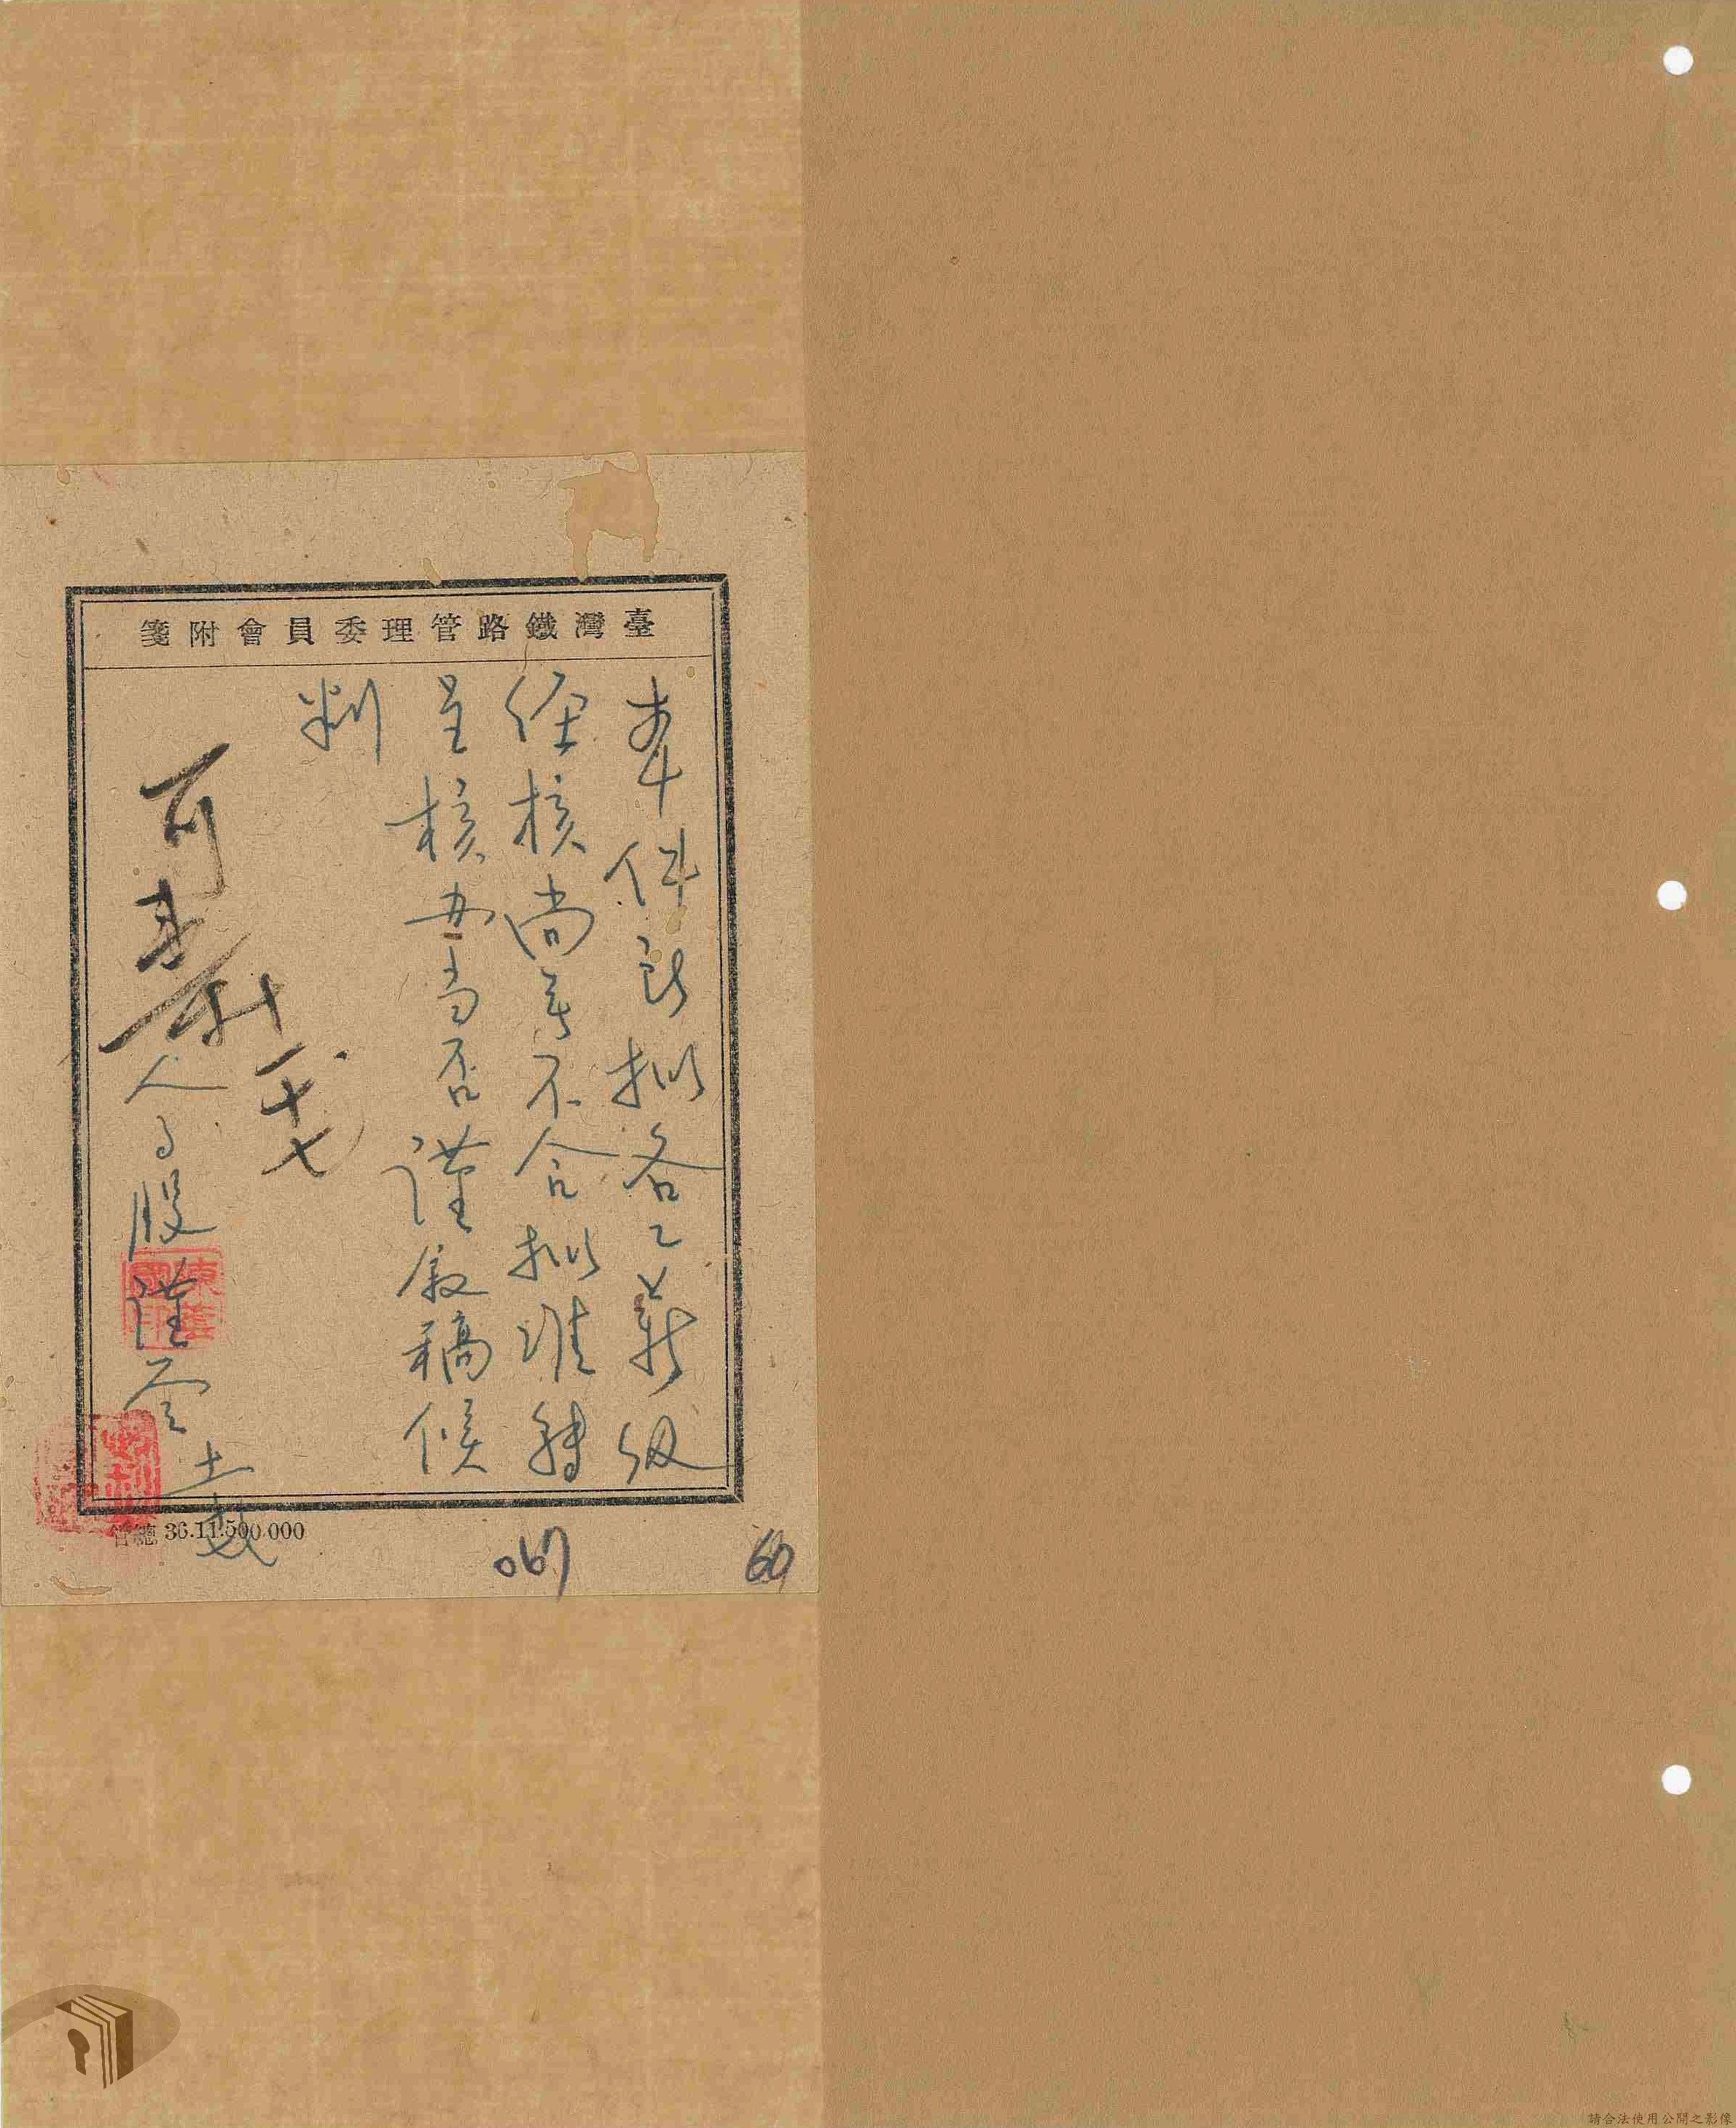 臺灣鐵路管理委員會附箋
本件所擬各之薪級
經核尚無不合擬准轉
呈核 當否謹敘稿候
判
可
人事股謹簽
總管 36.11.500.000
067
60
請合法使用公開之影像